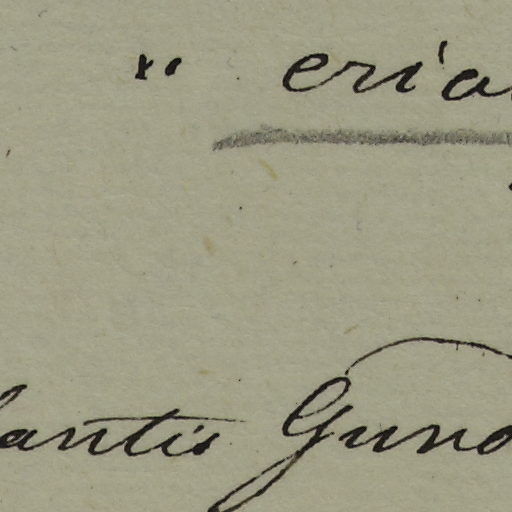 " eria
lantis Guno